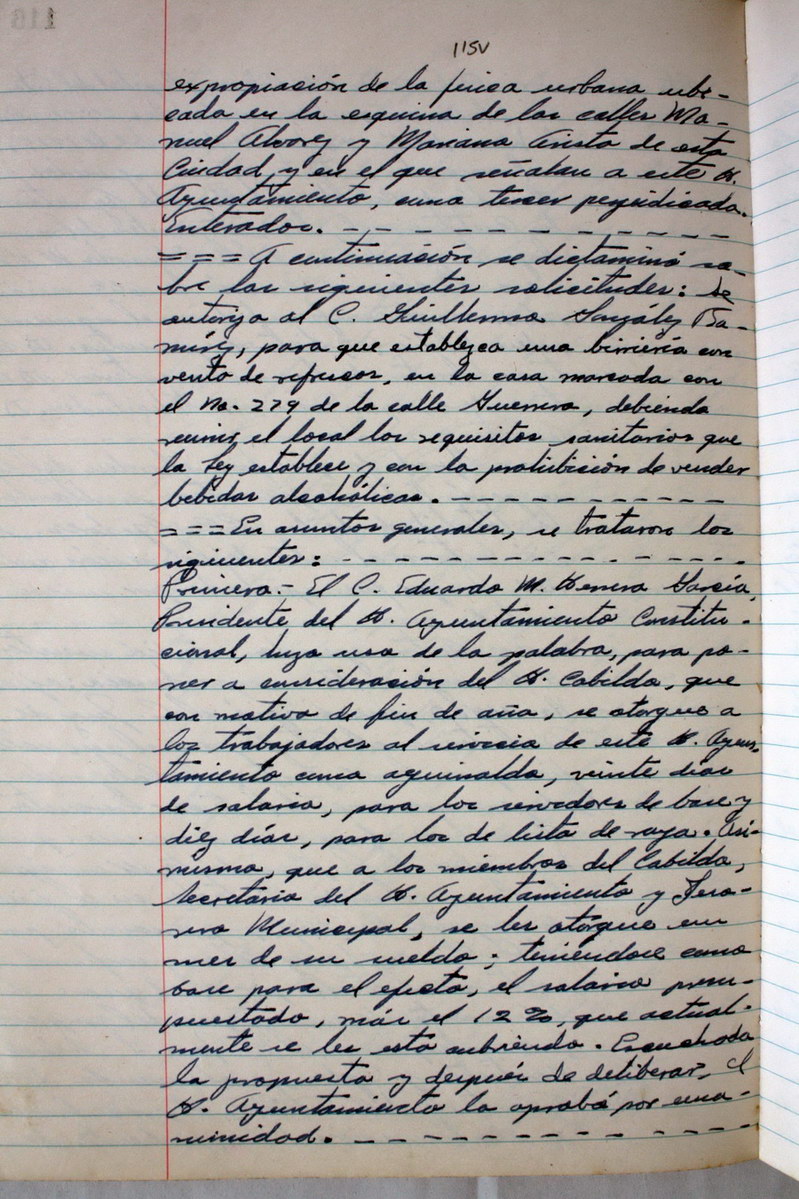 115v
expropiación de la finca urbana ubi-
cada en la esquina de las calles Ma-
nuel Alvarez y Mariano Arista de esta
Ciudad, y en el que señalan a este H.
Ayuntamiento, como tercer perjudicado.
Enterados. - - - - - - - - - - - - -
=== A continuación se dictaminó so-
bre las siguientes solicitudes: Se
autoriza al C. Guillermo González Ra-
mírez, para que establezca una birriería con
venta de refrescos, en la casa marcada con
el No. 279 de la calle Guerrero, debiendo
reunir el local los requisitos sanitarios que
la Ley establece y con la prohibición de vender
bebidas alcohólicas. - - - - - - - - - - -
=== En asuntos generales, se trataron los
siguientes: - - - - - - - - - - - - - -
Primero.- El C. Eduardo M. Herrera García,
Presidente del H. Ayuntamiento Constitu-
cional, hizo uso de la palabra, para po-
ner a consideración del H. Cabildo, que
con motivo de fin de año, se otorgue a
los trabajadores al servicio de este H. Ayun-
tamiento como aguinaldo, veinte días
de salario, para los servidores de base y
diez días, para los de lista de raya. Asi-
mismo, que a los miembros del Cabildo,
Secretario del H. Ayuntamiento y Teso-
rero Municipal, se les otorgue un
mes de su sueldo; teniéndose como
base para el efecto, el salario presu-
puestado, más el 12%, que actual-
mente se les esta cubriendo. Escuchada
la propuesta y después de deliberar, el
H. Ayuntamiento la aprobó por una-
nimidad. - - - - - - - - - - - - -